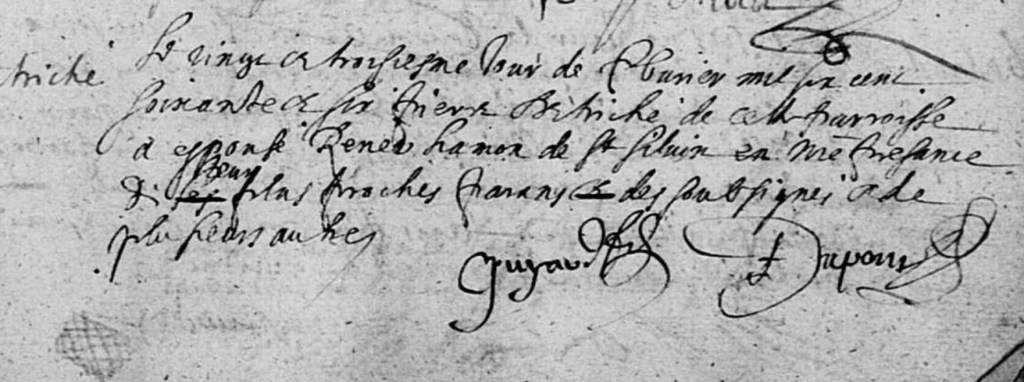 triché
Le vingt et troisiesme Jour de feburier mil six cent
soixante et six Pierre Bétriché de cette parroisse
a espousé Renée hamon de St Siluin en ma presance
& de leurs plus proches parans & des soubsignés & de
plusieurs autres
Guyard
Dupont